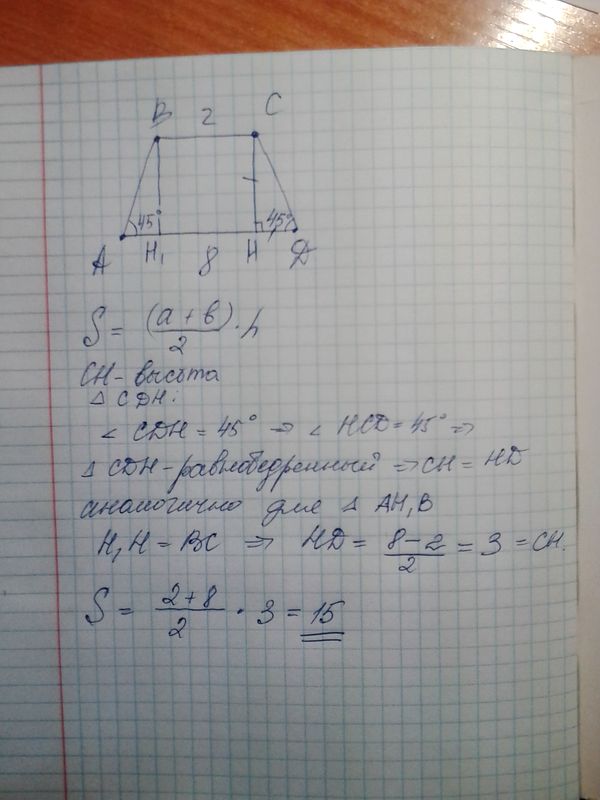 B 2 C
45° 45°
A H₁ 8 H D
S = (a + b)/2 · h
CH - высота
△ CDH:
∠ CDH = 45° ⇒ ∠ HCD = 45° ⇒
△ CDH - равнобедренный ⇒ CH = HD
аналогично для △ AH₁B
H₁H = BC ⇒ HD = (8 - 2)/2 = 3 = CH.
S = (2 + 8)/2 · 3 = 15